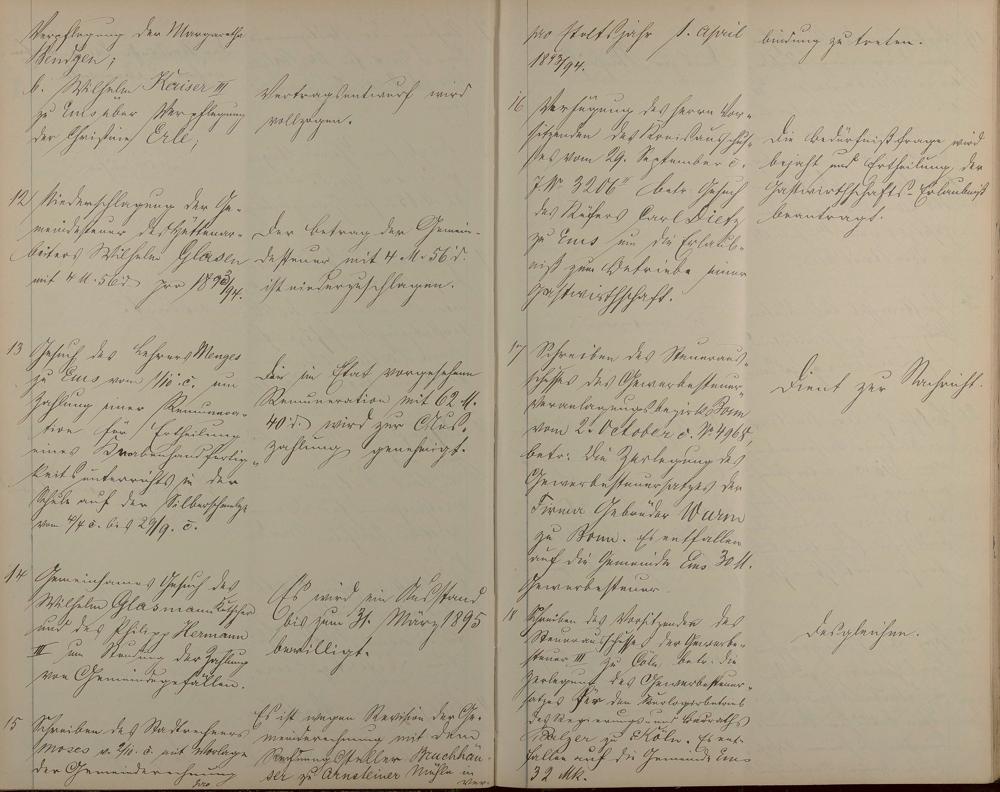 Verpflegung der Margaretha
Bendgen;
b. Wilhelm Kaiser III
zu Ems über Verpflegung
der Christine Erle;
Vertragsentwurf wird
vollzogen.
12/ Niederschlagung der Ge-
meindesteuer des Hüttenar-
beiters Wilhelm Glasen
mit 4 M. 56 d pro 1893/94.
Der Betrag der Gemein-
desteuer mit 4 M. 56 d.
ist niederzuschlagen.
13 Gesuch des Lehrers Menges
zu Ems vom 1/10. c. um
Zahlung einer Remunera-
tion für Ertheilung
eines Knabenhandfertig-
keitsunterrichts in der
Schule auf der Silberschmelze
vom 4/4 c. bis 29/9. c.
Die im Etat vorgesehene
Remuneration mit 62 M.
40 d. wird zur Aus-
zahlung genehmigt.
14 Gemeinsames Gesuch des
Wilhelm Glasmann Kutscher
und des Philipp Hermann
III um Stundung der Zahlung
von Gemeindegefällen.
Es wird ein Ausstand
bis zum 31. März 1895
bewilligt.
15 Schreiben des Stadtrechners
Moses v. 2/10. c. mit Vorlage
der Gemeinderechnung
pro
Es ist wegen Revision der Ge-
meinderechnung mit dem
Rechnungssteller Bruchhäu-
ser zu Arnsteiner Mühle in
Ver-
pro Etatsjahr 1. April
1893/94.
bindung zu treten.
16 Verfügung des Herrn Vor-
sitzenden des Kreisausschus-
ses vom 29. September c.
J. No 3206 II betr. Gesuch
des Küfers Carl Dietz
zu Ems um die Erlaub-
niß zum Betriebe einer
Gastwirthschaft.
Die Bedürfnißfrage wird
bejaht und Ertheilung der
Gastwirthschafts-Erlaubniß
beantragt.
17 Schreiben des Steueraus-
schusses des Gewerbesteuer-
veranlagungsbezirks Bonn
vom 2. October c. No 4968
betr. die Zerlegung des
Gewerbesteuersatzes der
Firma Gebrüder Wurm
zu Bonn. Es entfallen
auf die Gemeinde Ems 30 M.
Gewerbesteuer.
Dient zur Nachricht.
18 Schreiben des Vorsitzenden des
Steuerausschusses der Gewerbe-
steuer III zu Cöln betr. die
Zerlegung des Gewerbesteuer-
satzes für den
des Regierungs- und Bauraths
zu Köln. Es ent-
fallen auf die Gemeinde Ems
32 Mk.
Desgleichen.